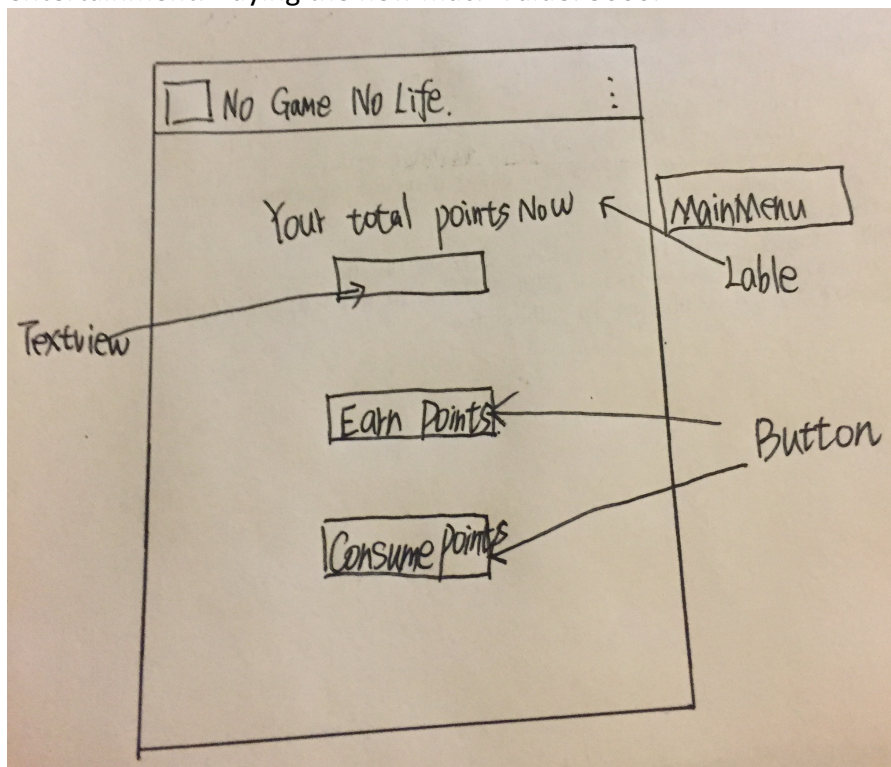 No Game No Life.
Your total points Now
MainMenu
Lable
Textview
Earn Points
Button
Consume points